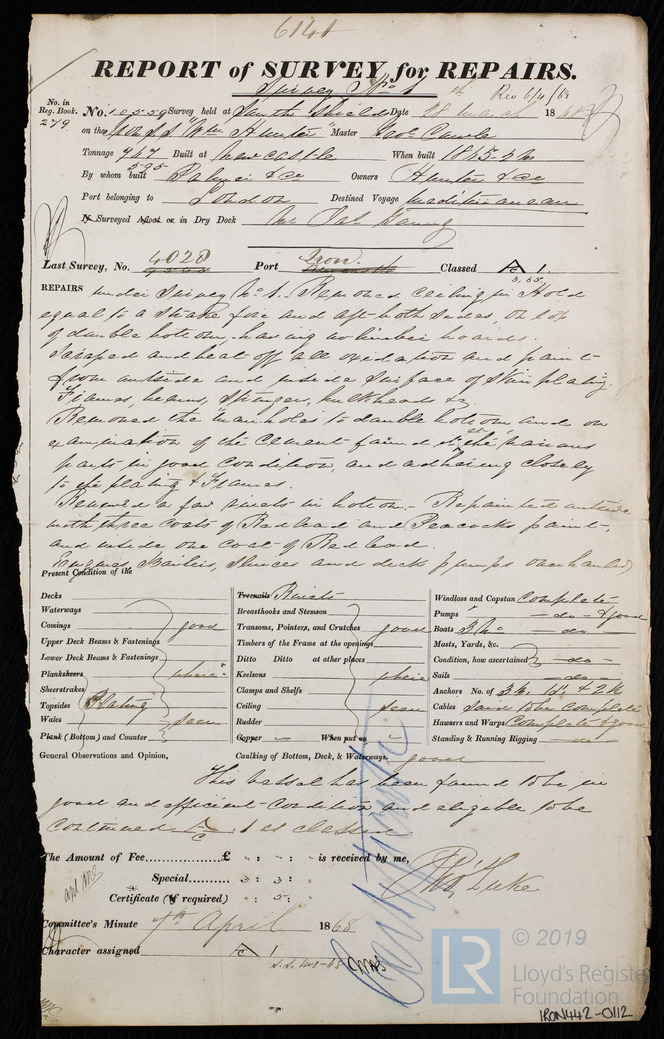 6141
REPORT of SURVEY for REPAIRS.
Survey No 1
Rec 6/4/68
No. in Reg. Book. 279
No. 10559 Survey held at South Shields Date 28 March 1868
on the Iron S.S. Wm Hunter Master Geo. Cawle
Tonnage 747 Built at Newcastle When built 1845-
595
By whom built Palmer & Co Owners Hunter & Co
Port belonging to London Destined Voyage Mediterranean
If Surveyed Afloat or in Dry Dock
Last Survey, No. 4028 Port Iron. Classed A 1.
REPAIRS under Survey No. 1. Removed ceiling in Hold
equal to a strake fore and aft both sides, on top
of double bottom having no limber boards.
Scraped and beat off all oxidation and paint
from outside and inside surface of skin plating,
Frames, beams, stringer, bulkheads &c
Removed the manholes to double bottom and on
examination of the cement found it at the various
parts in good condition, and adhering closely
to the plating & Frames.
Renewed a few rivets in bottom - Repainted outside
with three coats of Red lead and Peacocks paint,
and inside one coat of Red lead.
Engines, Boilers, Sluices and deck pumps overhauled
Present Condition of the
Decks
Waterways
Comings good
Upper Deck Beams & Fastenings
Lower Deck Beams & Fastenings
Planksheers where
Sheerstrakes
Topsides Plating
Wales seen
Plank (Bottom) and Counter
Treenails Rivets
Breasthooks and Stemson
Transoms, Pointers, and Crutches good
Timbers of the Frame at the openings
Ditto Ditto at other places
Keelsons where
Clamps and Shelfs
Ceiling seen
Rudder
Copper When put on
Windlass and Capstan Complete
Pumps do & good
Boats 3 No do
Masts, Yards, &c.
Condition, how ascertained do
Sails do
Anchors No. of 3 B,
Cables Said to be complete
Hawsers and Warps Complete & good
Standing & Running Rigging do
General Observations and Opinion, Caulking of Bottom, Deck, & Waterways, good
This vessel has been found to be in
good and efficient condition and eligible to be
continued A 1 as classed.
The Amount of Fee............£ " : " : " is received by me,
Special............ 3 : 3 : "
Certificate (If required) " : 5 : "
Jno. Luke
Committee's Minute 7th April 1868
Character assigned A 1
© 2019
LR
Lloyd's Register
Foundation
IRON442-0112